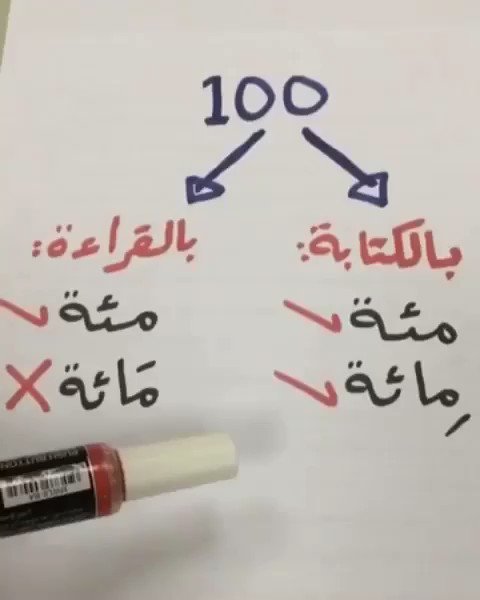 100
بالكتابة:
مئة
مِائة
بالقراءة:
مئة
مَائة